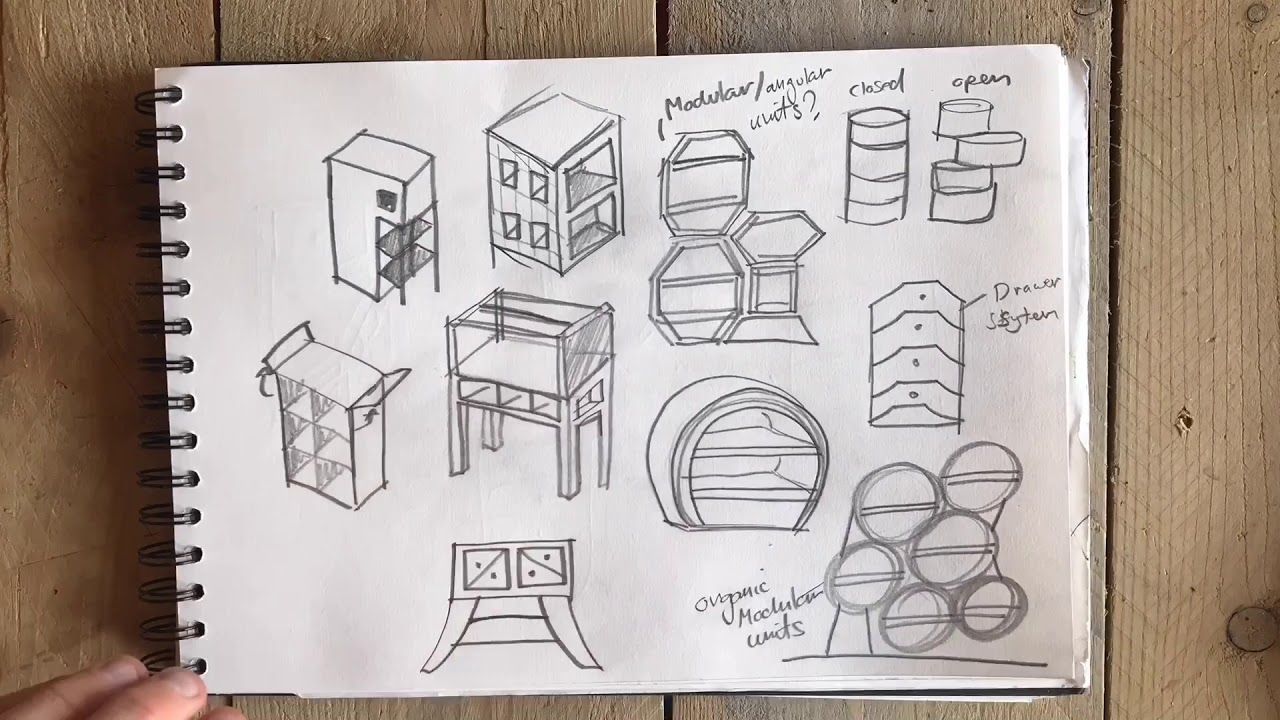 Modular/angular
units?
closed
open
Drawer
System
organic
Modular
units